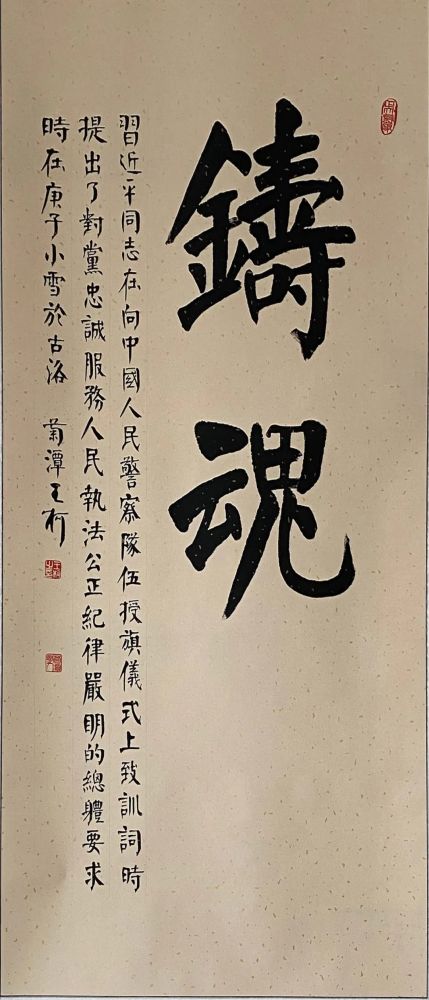 鑄魂
習近平同志在向中國人民警察隊伍授旗儀式上致訓詞時
提出了對黨忠誠服務人民執法公正紀律嚴明的總體要求
時在庚子小雪於古洛 菊潭王柯